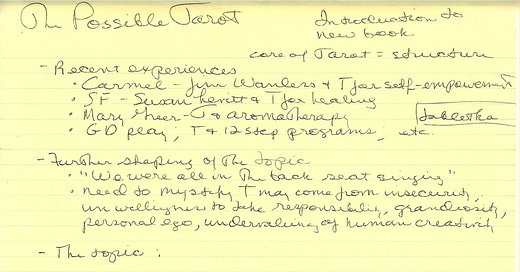 The Possible Tarot
Introduction to
new book
core of Tarot = structure
- Recent experiences
• Carmel - Jim Wanless & T for self-empowerment
• SF - Susan Levitt & T for healing
• Mary Greer - T & aromatherapy
• GD play; T & 12 step programs, etc.
- Further shaping of the topic
• "We were all in the back seat singing"
• need to mystify T may come from insecurity,
unwillingness to take responsibility, grandiosity,
personal ego, undervaluing of human creativity
- The topic: